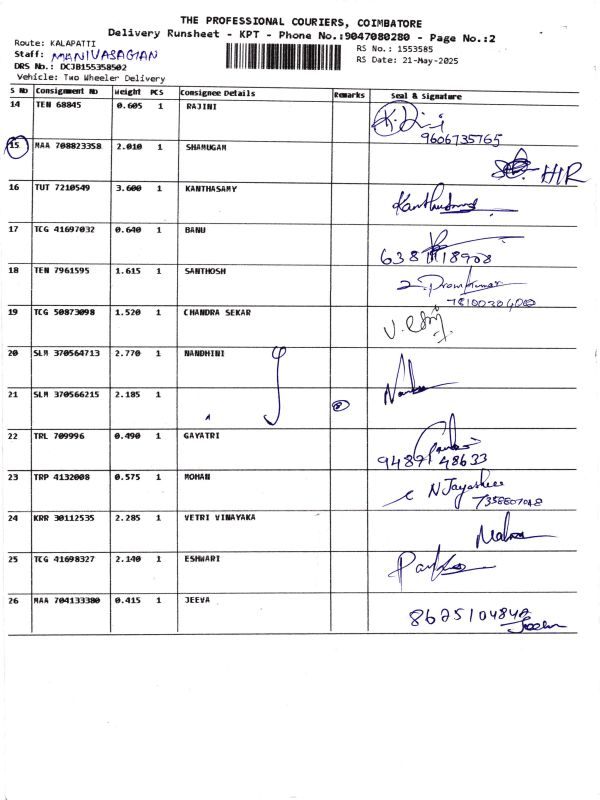 THE PROFESSIONAL COURIERS, COIMBATORE
Delivery Runsheet - KPT - Phone No.:9047080280 - Page No.:2
Route: KALAPATTI
Staff: MANIVASAGIAN
DRS No.: DCJB155358502
Vehicle: Two Wheeler Delivery
RS No.: 1553585
RS Date: 21-May-2025
S No Consignment No Weight PCS Consignee Details Remarks Seal & Signature
14 TEN 68845 0.605 1 RAJINI
9606735765
15 MAA 708823358 2.010 1 SHAMUGAM
HR
16 TUT 7210549 3.600 1 KANTHASAMY
17 TCG 41697032 0.640 1 BANU
18 TEN 7961595 1.615 1 SANTHOSH
19 TCG 50873098 1.520 1 CHANDRA SEKAR
20 SLM 370564713 2.770 1 NANDHINI
21 SLM 370566215 2.185 1
22 TRL 709996 0.490 1 GAYATRI
9489148633
23 TRP 4132008 0.575 1 MOHAN
N Jayashree
24 KRR 30112535 2.285 1 VETRI VINAYAKA
25 TCG 41698327 2.140 1 ESHWARI
26 MAA 704133380 0.415 1 JEEVA